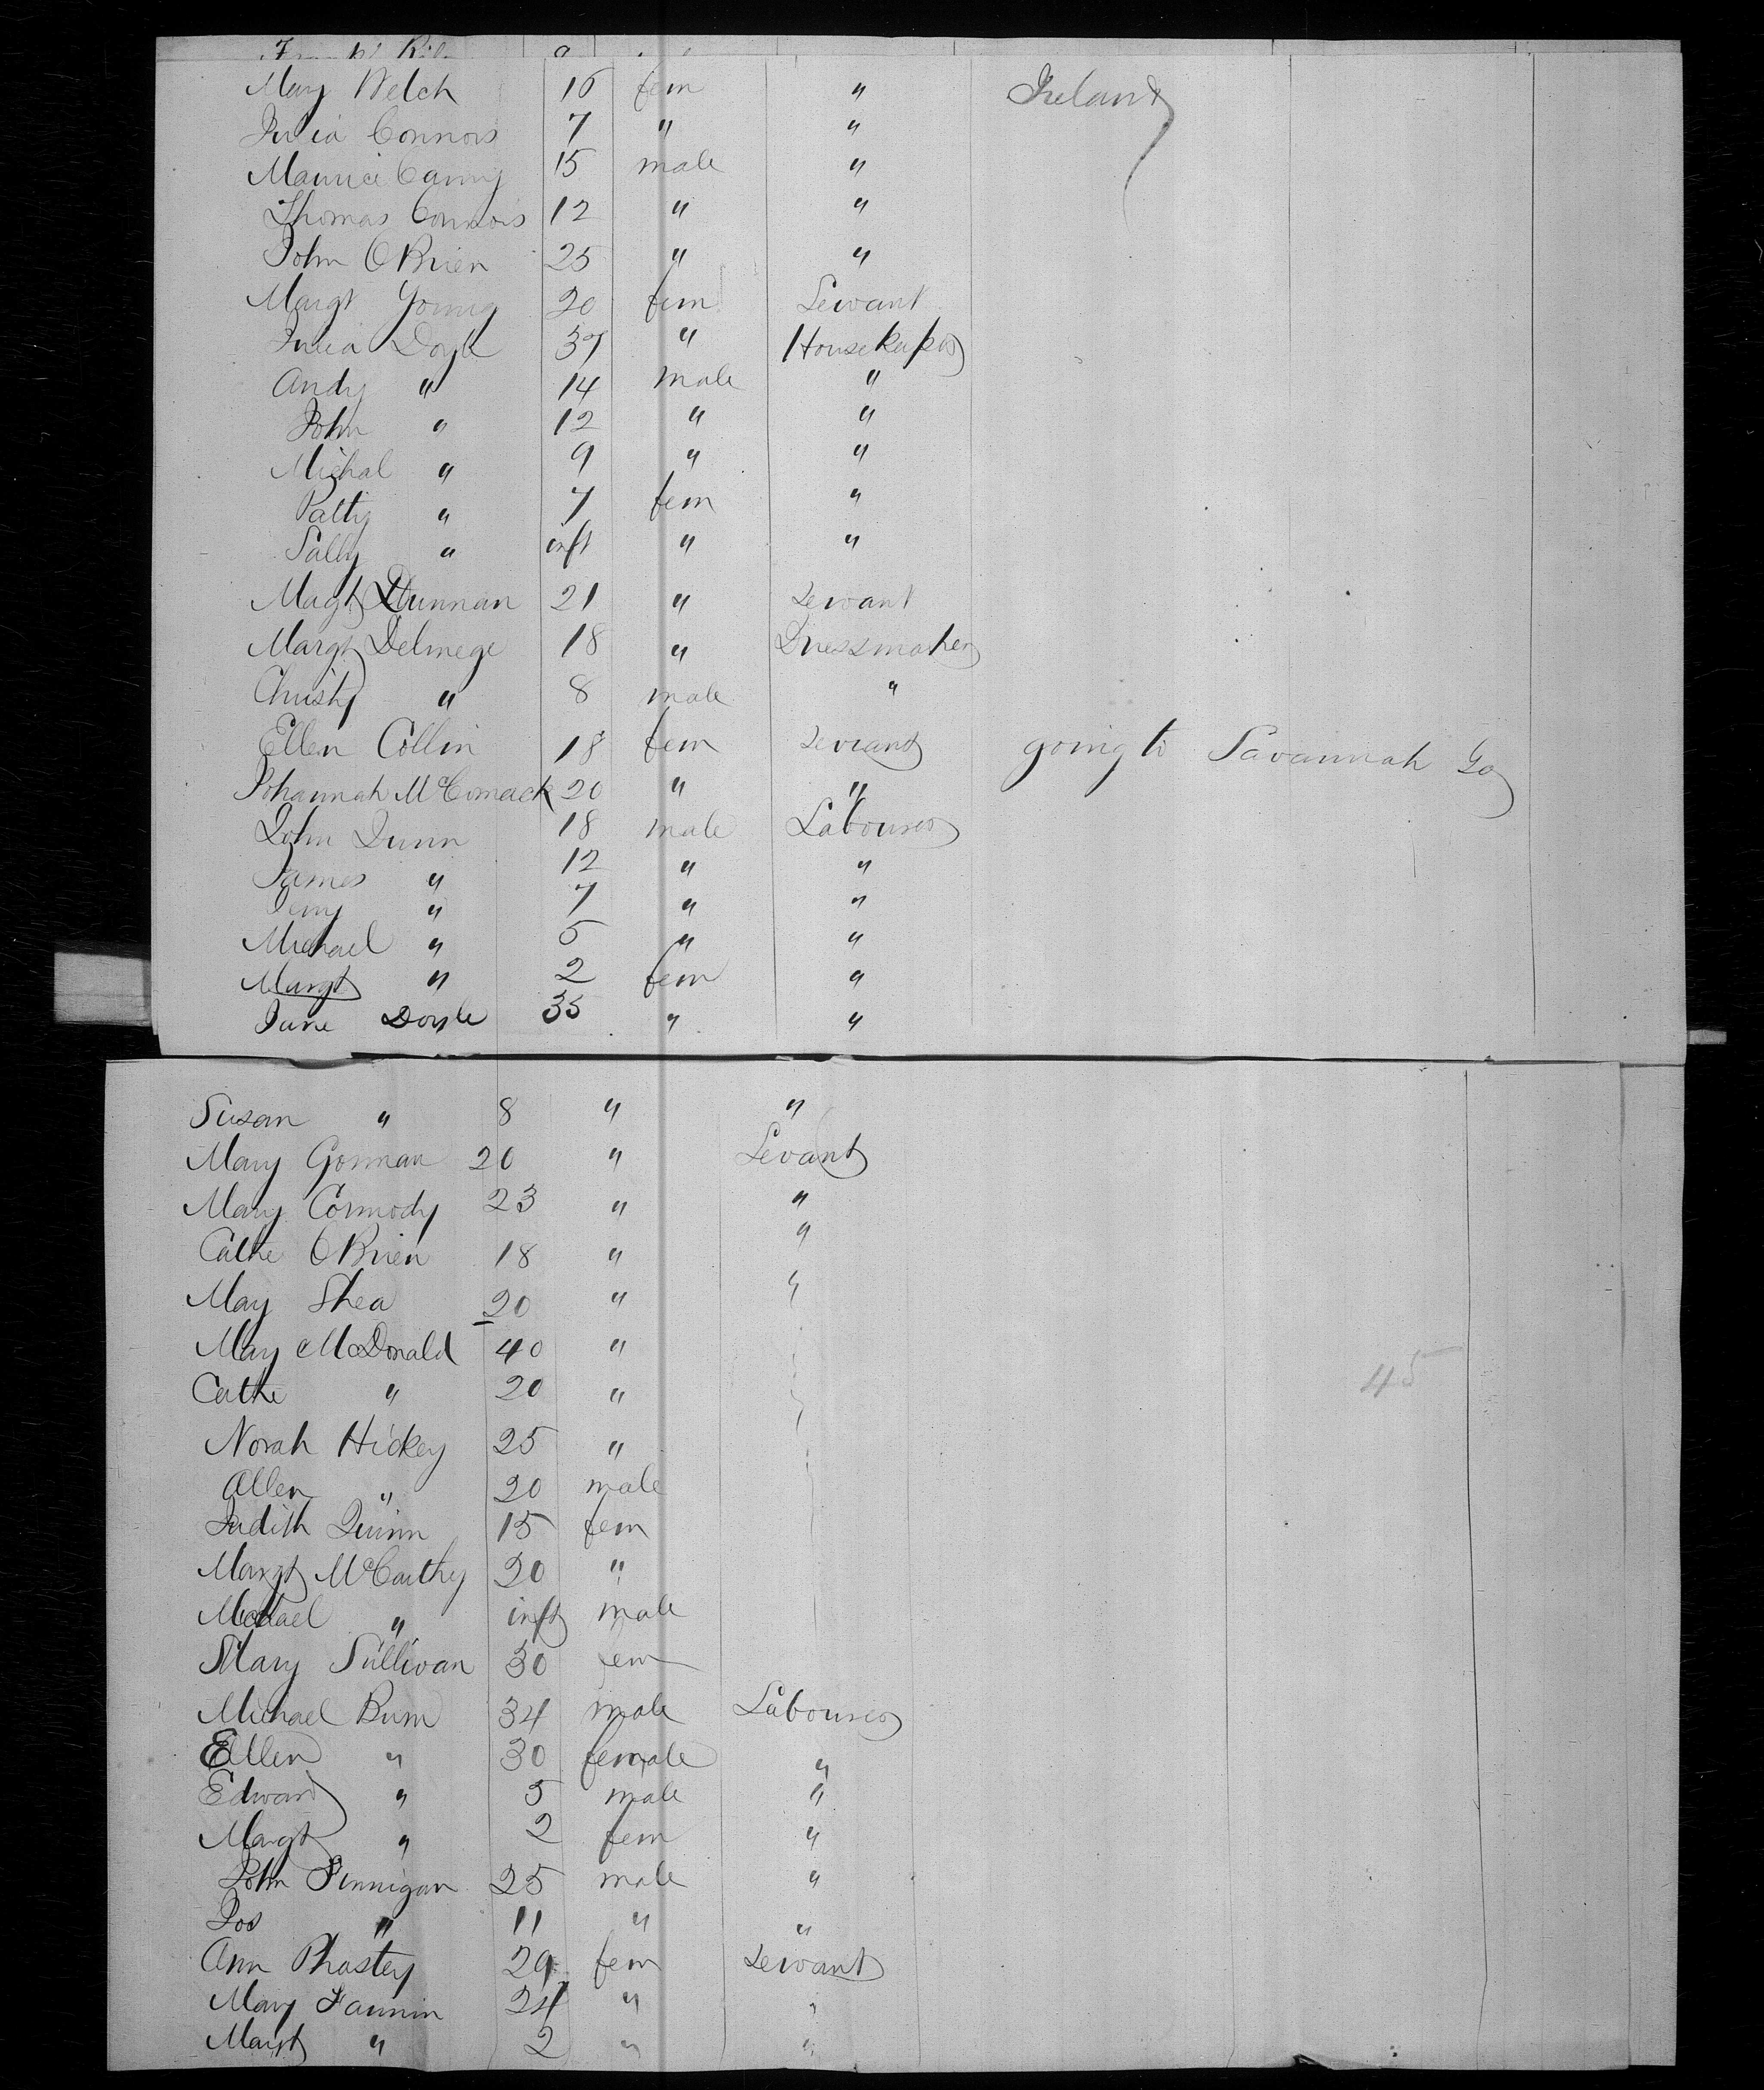 Mary Welch 16 fem " Ireland
Julia Connors 7 " "
Maurice 15 male "
Thomas Connors 12 " "
John OBrien 25 " "
Margt Young 20 fem Servant
Julia Doyle 37 " Housekeeper
Andy " 14 male "
John " 12 " "
Michal " 9 " "
Patty " 7 fem "
Sally " inft " "
Magt 21 " Servant
Margt Delmege 18 " Dressmaker
Christy " 8 male "
Ellen Collin 18 fem Servant going to Savannah Ga
Johannah McCormack 20 " "
John Dunn 18 male Labourer
James " 12 " "
Jerry " 7 " "
Michael " 5 " "
Margt " 2 fem "
Jane Doyle 35 " "
Susan " 8 " "
Mary Gorman 20 " Sevant
Mary Cormody 23 " "
Cathe OBrien 18 " "
May Shea 20 " "
May McDonald 40 "
Cathe " 20 " 45
Norah Hickey 25 "
Allen " 20 male
Judith Quinn 15 fem
Margt McCarthy 20 "
Michael " inft male
Mary Sullivan 30 fem
Michael 34 male Labourer
Ellen " 30 female "
Edward " 5 male "
Margt " 2 fem "
John Finnigan 25 male "
Jos " 11 " "
Ann Phastey 29 fem Servant
Mary Fannin 24 " "
Margt " 2 " "